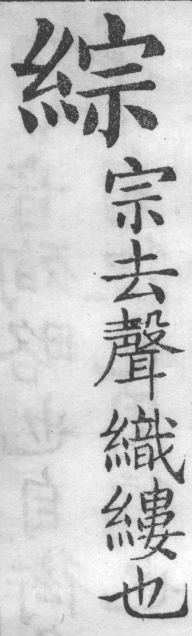 綜
宗去聲織縷也